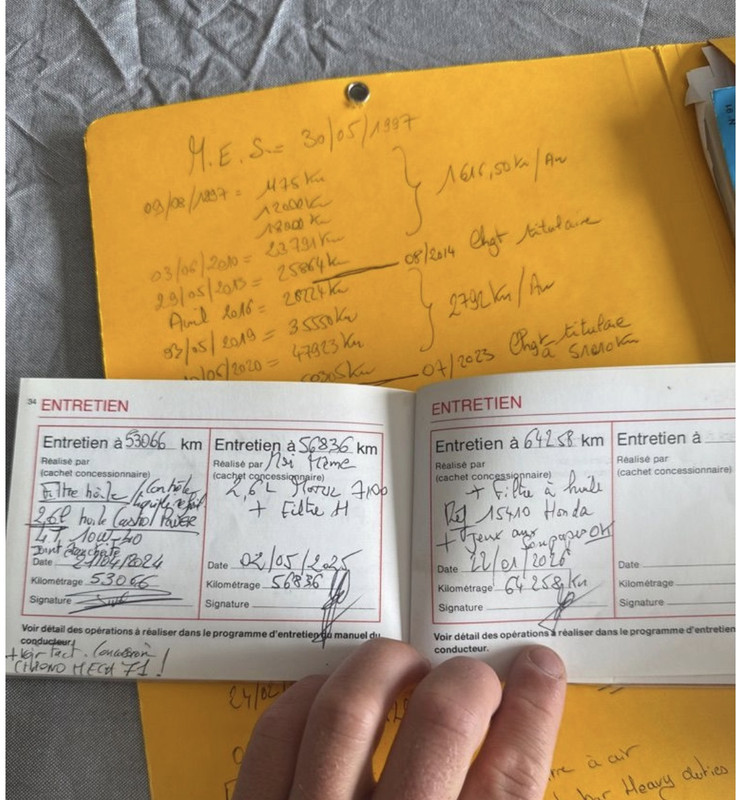 M.E.S = 30/05/1997
09/08/1997 = 1175 Km
12000 Km
18000 Km
1616,50 Km/An
03/06/2010 = 23791 Km
29/05/2013 = 25864 Km
08/2014 Chgt titulaire
Avril 2016 = 28224 Km
03/05/2019 = 35550 Km
2792 Km/An
/06/2020 = 47923 Km
07/2023 Chgt titulaire
à 51010 Km
34 ENTRETIEN
Entretien à 53066 km
Réalisé par
(cachet concessionnaire)
Filtre huile / Contrôle
2,6l huile Castrol Power
4T 10W-40
Joint
Date 2024
Kilométrage 53066
Signature
Entretien à 56836 km
Réalisé par Moi Même
(cachet concessionnaire)
2,6 L Motul 7100
+ Filtre H
Date 02/05/2025
Kilométrage 56836
Signature
Voir détail des opérations à réaliser dans le programme d'entretien du manuel du
conducteur.
CHRONO MECA 71 !
ENTRETIEN
Entretien à 64258 km
Réalisé par
(cachet concessionnaire)
+ Filtre à huile
Ref 15410 Honda
+ Jeux aux soupapes OK
Date 22/01/2026
Kilométrage 64258 Km
Signature
Entretien à
Réalisé par
(cachet concessionnaire)
Date
Kilométrage
Signature
Voir détail des opérations à réaliser dans le programme d'entretien
conducteur.
24/02
à air
Heavy duties